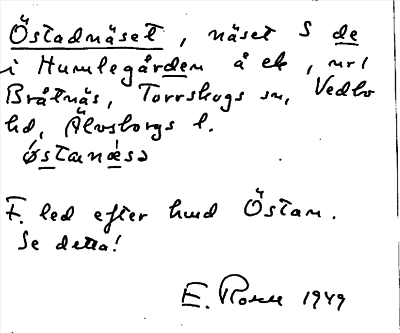 Östadnäset, näset S de
i Humlegården å ek, nr 1
Bråtnäs, Torrskogs sn, Vedbo
hd, Älvsborgs l.
østanæsə
F. led efter hmd Östan.
Se detta!
E. Rosell 1949